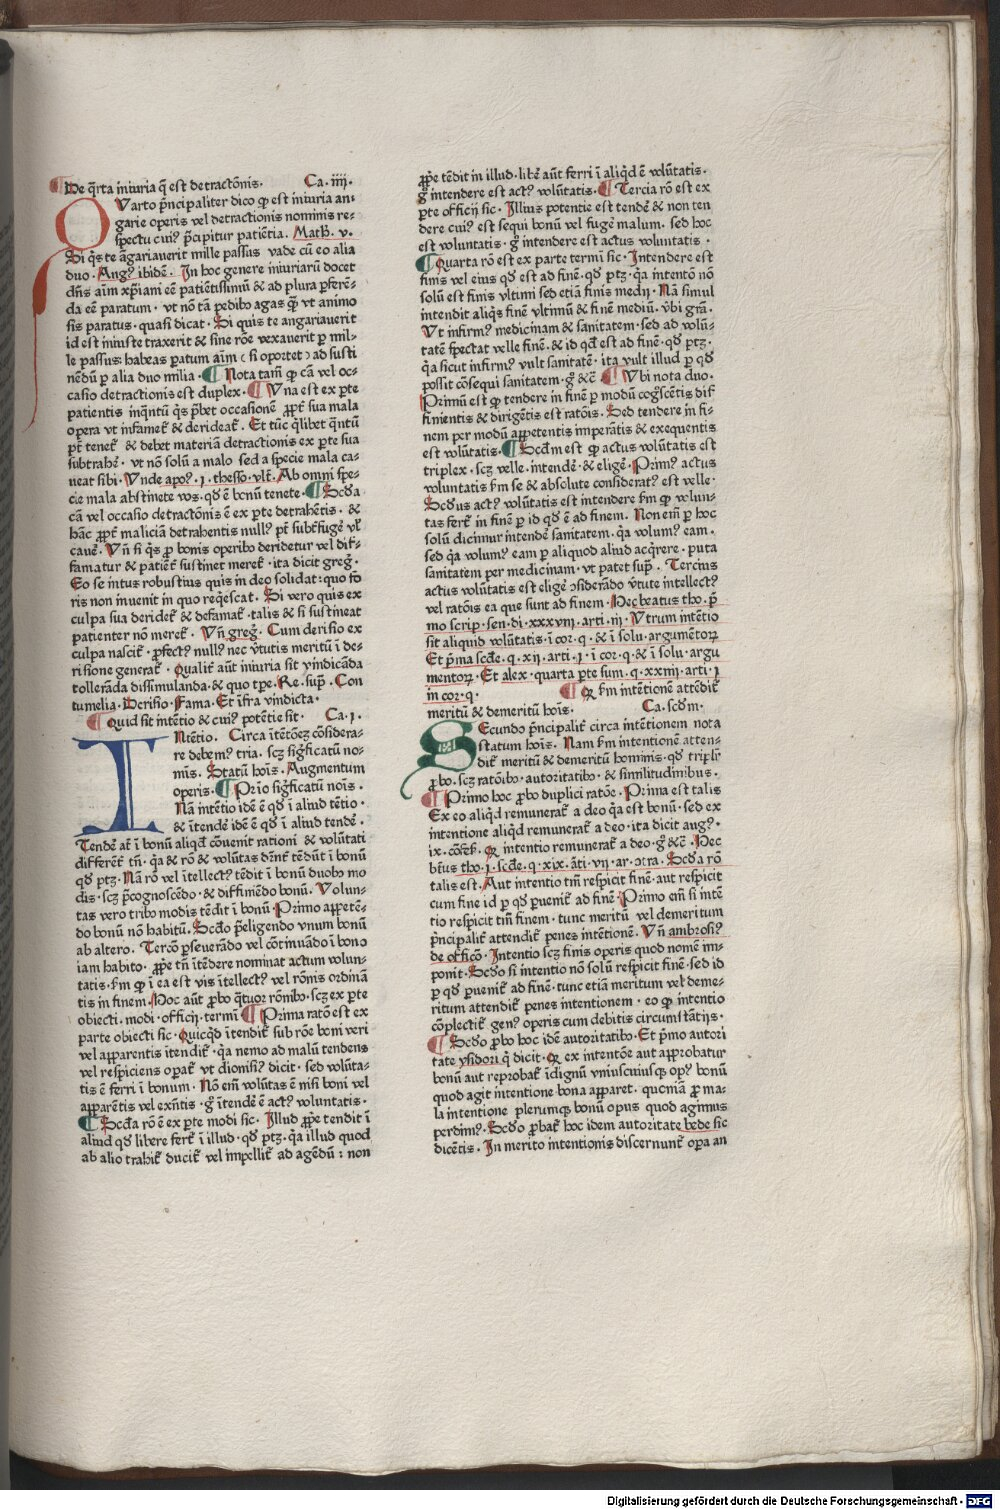 De q̃rta iniuria q̃ est detractõnis. Ca. iiij.
Quarto p̃ncipaliter dico ꝙ est iniuria an-
garie operis vel detractionis nominis re-
spectu cuiꝰ p̃cipitur patiẽtia. Math. v.
Si q̃s te ãgariauerit mille passus vade cũ eo alia
duo. Augꝰ ibidẽ. In hoc genere iniuriarũ docet
dñs aĩm xp̃iani eẽ patiẽtissimũ & ad plura p̃ferẽ-
da eẽ paratum. vt nõ tã pedibꝰ agas q̃ꝫ vt animo
sis paratus. quasi dicat. Si quis te angariauerit
id est iniuste traxerit & sine rõe vexauerit ꝑ mil-
le passus: habeas ꝑatum aĩm (si oportet) ad susti
nẽdũ ꝑ alia duo milia. ¶ Nota tam̃ ꝙ cã vel oc-
casio detractionis est duplex. ¶ Vna est ex ꝑte
patientis inq̃ntũ q̃s p̃bet occasionẽ ꝓpt̃ sua mala
opera vt infamet̃ & derideat̃. Et tũc q̃libet q̃ntũ
pt̃ tenet̃ & debet materiã detractionis ex ꝑte sua
subtrahẽ. vt nõ solũ a malo sed a specie mala ca-
ueat sibi. Vnde apoꝰ. j. thesso. vlt̃. Ab omni spe-
cie mala abstinete vos. qđ ẽ bonũ tenete. ¶ Scđa
cã vel occasio detractõnis ẽ ex ꝑte detrahẽtis. &
hãc ꝓpt̃ maliciã detrahentis nullꝰ pt̃ subt̃fugẽ vł
cauẽ. Vñ si q̃s ꝓ bonis operibꝰ deridetur vel dif-
famatur & patiẽt̃ sustinet meret̃. ita dicit greg̃.
Eo se intus robustius quis in deo solidat: quo fo
ris non inuenit in quo req̃escat. Si vero quis ex
culpa sua deridet̃ & defamat̃. talis & si sustineat
patienter nõ meret̃. Vñ greg̃. Cum derisio ex
culpa nascit̃. ꝓfectꝰ nullꝰ nec ṽtutis meritũ ĩ de-
risione generat̃. Qualit̃ aũt iniuria sit vindicãda
tollerãda dissimulanda. & quo tꝑe. Re. supͣ. Con
tumelia. Derisio. Fama. Et ĩfra vindicta.
¶ Quid sit intẽtio & cuiꝰ potẽtie sit. Ca. j.
INtẽtio. Circa ĩtẽtõeʒ cõsidera-
re debemꝰ tria. scʒ sig̃ficatũ no-
mis. Statũ hoĩs. Augmentum
operis. ¶ Prĩo sig̃ficatũ noĩs.
Nã intẽtio idẽ ẽ qđ ĩ aliud tẽtio.
& ĩtendẽ idẽ ẽ qđ ĩ aliud tendẽ.
Tendẽ at̃ ĩ bonũ aliqđ cõuenit rationi & volũtati
differẽt̃ tñ. q̃a & rõ & volũtas dr̃nt̃ tẽdũt ĩ bonũ
qđ ptʒ. Nã rõ vel ĩtellectꝰ tẽdit ĩ bonũ duobꝰ mo
dis. scʒ p̃cognoscẽdo. & diffiniẽdo bonũ. Volun-
tas vero tribꝰ modis tẽdit ĩ bonũ. Primo appetẽ-
do bonũ nõ habitũ. Scđo p̃eligendo vnum bonũ
ab altero. Tercõ ꝑseuerãdo vel cõtinuãdo ĩ bono
iam habito. ꝓpẽ tñ ĩtẽdere nominat actum volun-
tatis. s̃m ꝙ ĩ ea est vis ĩtellectꝰ vel rõnis ordinã
tis in finem. Hoc aũt ꝓbo q̃tuor rõnibꝰ. scʒ ex ꝑte
obiecti. modi. officij. termĩ ¶ Prima ratõ est ex
parte obiecti sic. Quicq̃d ĩtendit̃ sub rõe boni veri
vel apparentis itendit̃. q̃a nemo ad malũ tendens
vel respiciens opat̃ vt dionisiꝰ dicit. sed volũta-
tis ẽ ferri ĩ bonum. Nõ em̃ volũtas ẽ nisi boni vel
apparẽtis vel exñtis. g̃ ĩtendẽ ẽ actꝰ voluntatis.
¶ Scđa rõ ẽ ex ꝑte modi sic. Illud ꝓpẽ tendit ĩ
aliud qđ libere fert̃ ĩ illud. qđ ptʒ. q̃a illud quod
ab alio trahit̃ ducit̃ vel impellit̃ ad agẽdũ: non
ꝓpẽ tẽdit in illud. libẽ aũt ferri ĩ aliq̃d ẽ volũtatis.
g̃ intendere est actꝰ volũtatis. ¶ Tercia rõ est ex
ꝑte officij sic. Illius potentie est tendẽ & non ten
dere cuiꝰ est sequi bonũ vel fugẽ malum. sed hoc
est voluntatis. g̃ intendere est actus voluntatis.
¶ Quarta rõ est ex parte termi sic. Intendere est
finis vel eius qđ est ad finẽ. qđ ptʒ. q̃a intentõ nõ
solũ est finis vltimi sed etiã finis medij. Nã simul
intendit aliq̃s finẽ vltimũ & finẽ mediũ. v̈bi grã.
Vt infirmꝰ medicinam & sanitatem. sed ad volũ-
tatẽ spectat velle finẽ. & id qđ est ad finẽ. qđ ptʒ.
q̃a sicut infirmꝰ vult sanitatẽ. ita vult illud ꝑ qđ
possit cõsequi sanitatem. g̃ &c̃ ¶ Vbi nota duo.
Primũ est ꝙ tendere in finẽ ꝑ modũ cog̃scẽtis dif
finientis & dirigẽtis est ratõis. Sed tendere in fi-
nem per modũ appetentis imperãtis & exequentis
est volũtatis. ¶ Scđm est ꝙ actus volũtatis est
triplex. scʒ velle. intendẽ. & eligẽ. Primꝰ actus
voluntatis s̃m se & absolute considerat̃ est velle.
Scđus actꝰ volũtatis est intendere s̃m ꝙ volun-
tas fert̃ in finẽ ꝑ id qđ ẽ ad finem. Non em̃ ꝑ hoc
solũ dicimur intendẽ sanitatem. q̃a volumꝰ eam.
sed q̃a volumꝰ eam ꝑ aliquod aliud acq̃rere. puta
sanitatem per medicinam. vt patet supͣ. Tercius
actus volũtatis est eligẽ ↄsiderãdo ṽtute intellectꝰ
vel ratõis ea que sunt ad finem. Hec beatus tho. p̃
mo scrip. sen. di. xxxviij. arti. iij. Vtrum intẽtio
sit aliquid volũtatis. ĩ cor. q̃. & ĩ solu. argumẽtorꝝ
Et p̃ma scđe. q. xij. arti. j. ĩ cor. q. & ĩ solu. argu
mentorꝝ. Et alex. quarta ꝑte sum. q. xxiiij. arti. j
in cor. q. ¶ Qꝫ s̃m intẽtionẽ attẽdit̃
meritũ & demeritũ hoĩs. Ca. scđm.
SEcundo p̃ncipalit̃ circa intẽtionem nota
statum hoĩs. Nam s̃m intentionẽ atten-
dit̃ meritũ & demeritũ hominis. qđ tripłr
ꝓbo. scʒ ratõibꝰ. autoritatibꝰ. & similitudinibus.
¶ Primo hoc ꝓbo duplici ratõe. Prima est talis
Ex eo aliq̃d remunerat̃ a deo q̃a est bonũ. sed ex
intentione aliq̃d remunerat̃ a deo. ita dicit augꝰ.
ix. cõfes̃. Qꝫ intentio remunerat̃ a deo. g̃ &c̃. Hec
bt̃us tho. j. scđe. q. xix. ãti. vij. ar. ↄtra. Scđa rõ
talis est. Aut intentio tm̃ respicit finẽ. aut respicit
cum fine id ꝑ qđ ꝑuenit̃ ad finẽ. Primo em̃ si intẽ
tio respicit tm̃ finem. tunc meritũ vel demeritum
p̃ncipalit̃ attendit̃ penes intẽtionẽ. Vñ ambrosiꝰ
de officõ. Intentio scʒ finis operis quod nomẽ im-
ponit. Scđo si intentio nõ solũ respicit finẽ. sed id
ꝑ qđ ꝑuenit̃ ad finẽ. tunc etiã meritum vel deme-
ritum attendit̃ penes intentionem. eo ꝙ intentio
cõplectit̃ genꝰ operis cum debitis circumstãtijs.
¶ Scđo ꝓbo hoc idẽ autoritatibꝰ. Et p̃mo autori
tate ysidori q̃ dicit. Qꝫ ex intentõe aut approbatur
bonũ aut reprobat̃ ĩdignũ vniuscuiusqꝫ opꝰ bonũ
quod agit intentione bona apparet. quoniã ꝓ ma-
la intentione plerumqꝫ bonũ opus quod agimus
perdimꝰ. Scđo ꝓbat̃ hoc idem autoritate bede sic
dicẽtis. In merito intentionis discernunt̃ opa an
Digitalisierung gefördert durch die Deutsche Forschungsgemeinschaft - DFG